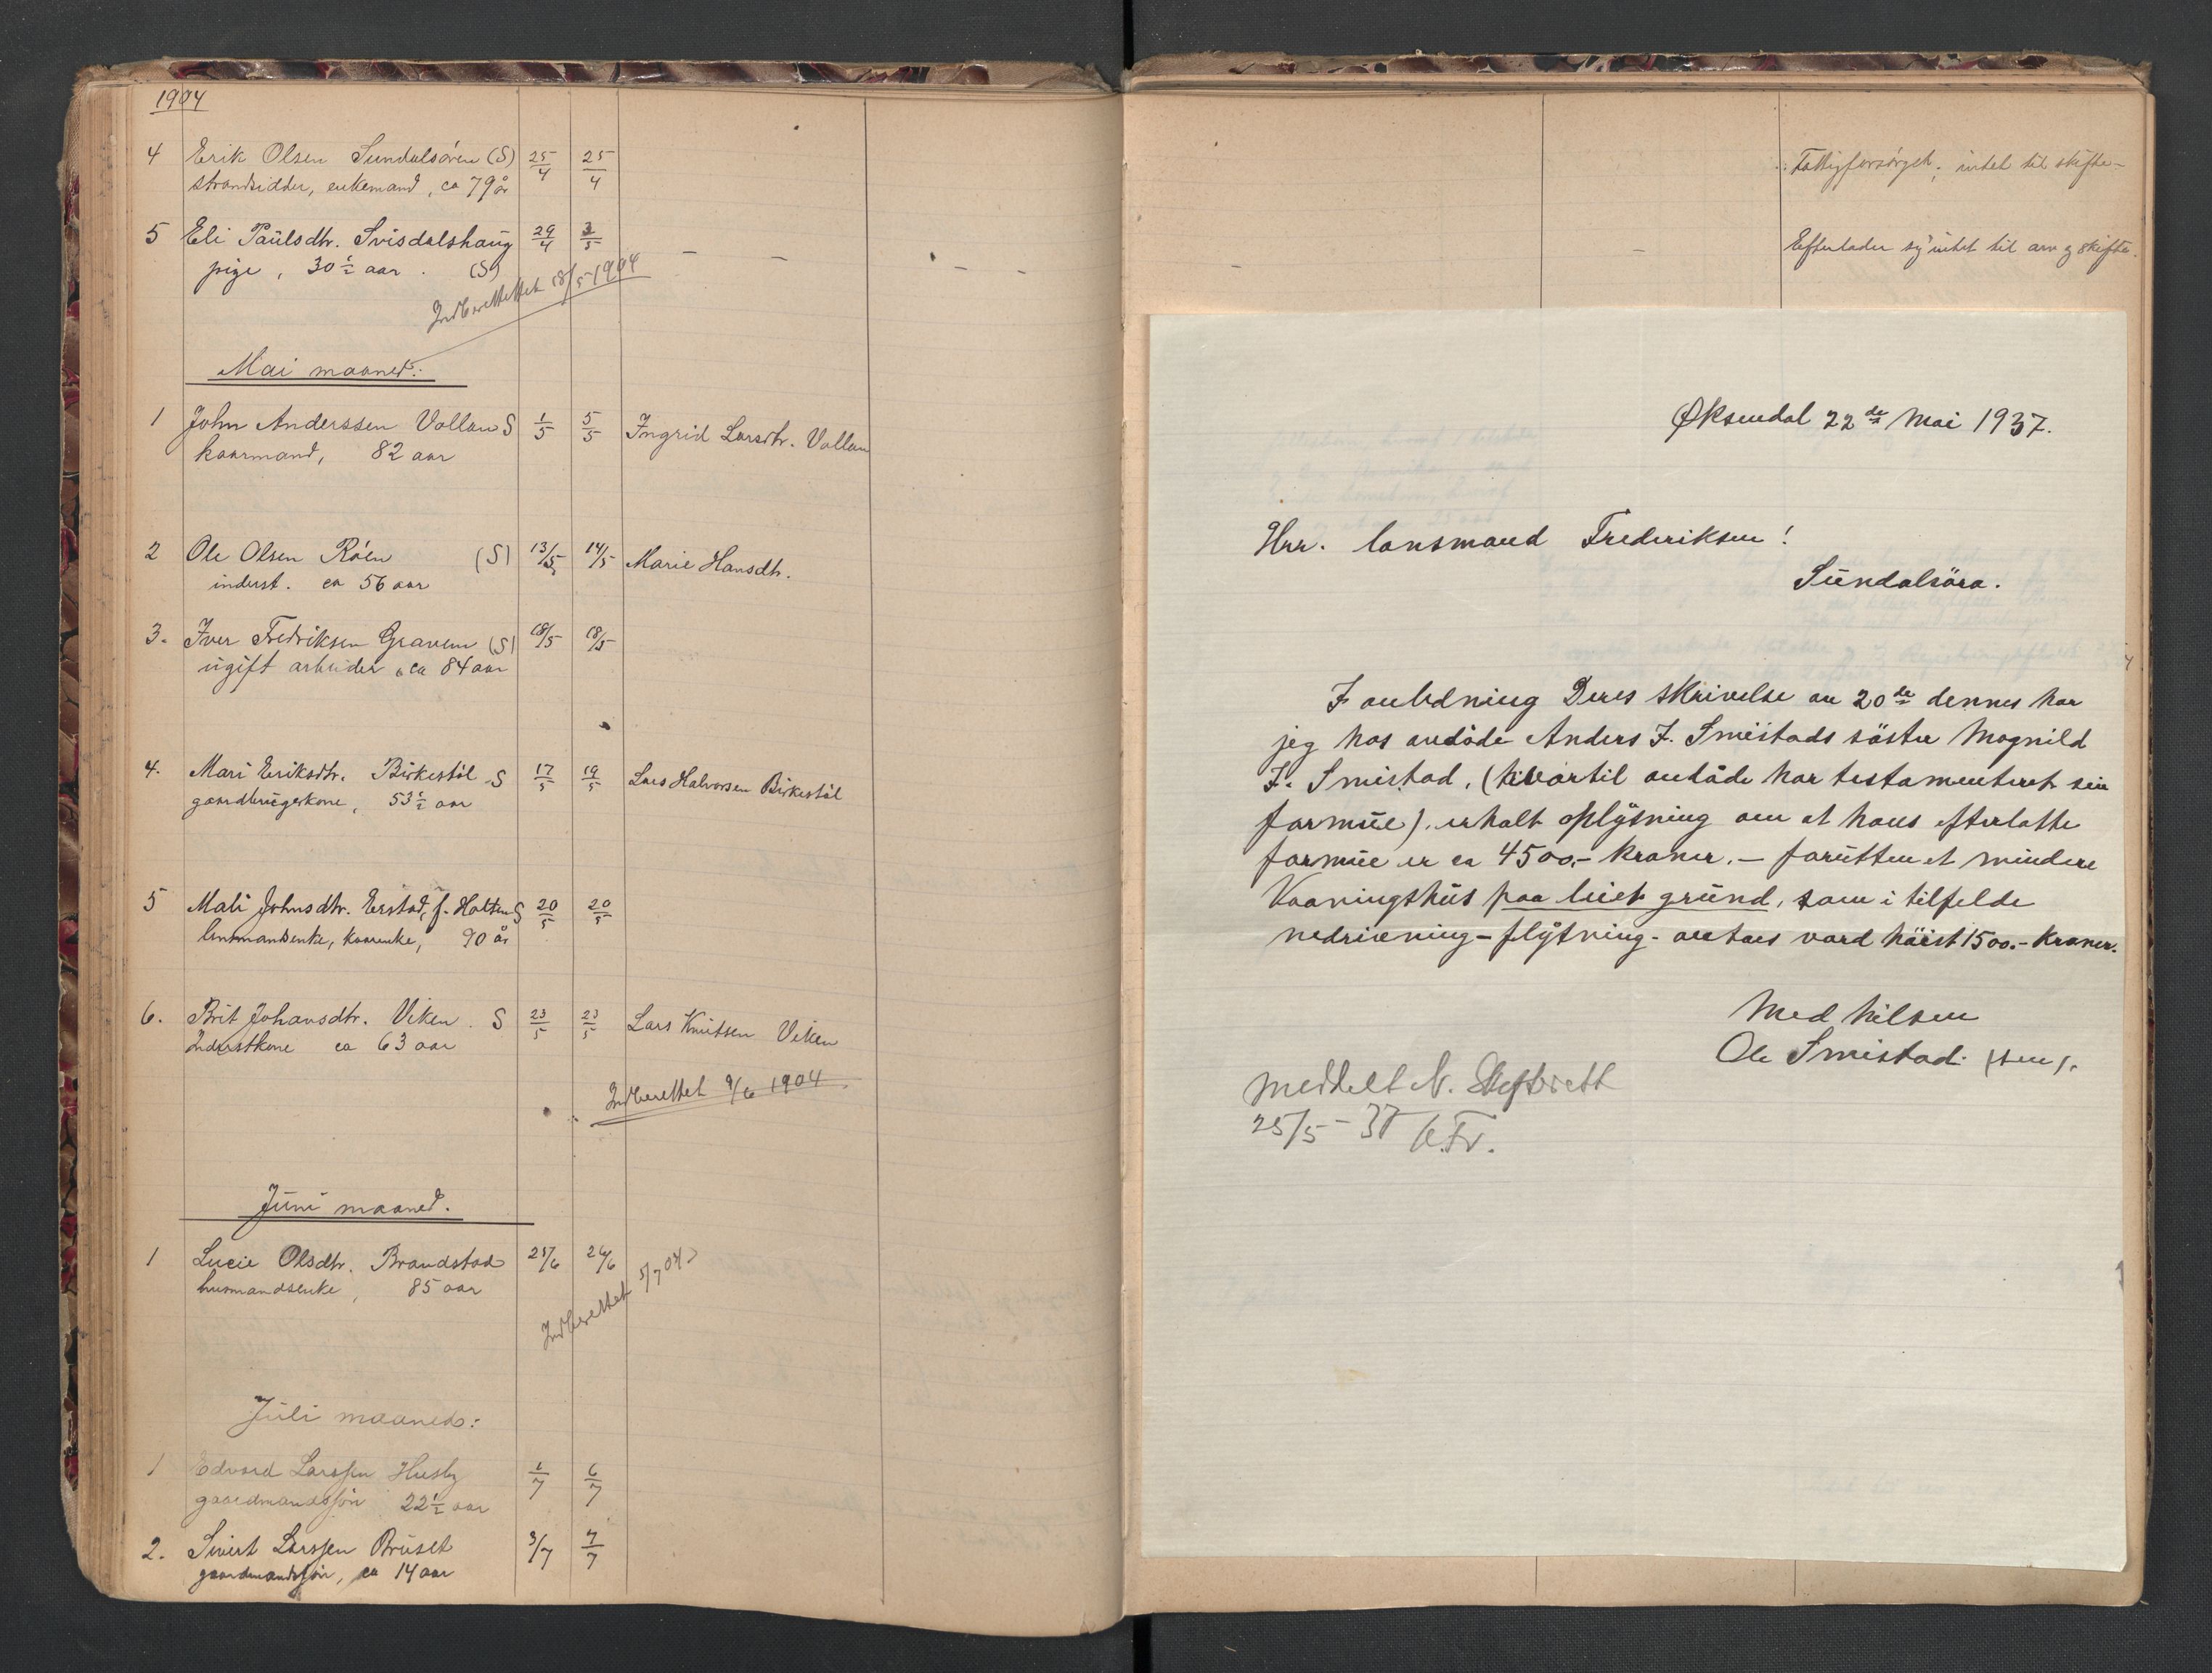 1904
4 Erik Olsen Sundalsøren (S) 25/4 25/4
strandsidder, enkemand, ca 79 år
Fattigforsørget; intet til skifte
5 Eli Paulsdtr. Svisdalshaug 29/4 3/5 - - - - - -
pige, 30 1/2 aar. (S)
Efterlader sig intet til arv og skifte.
Indberettet 18/5 1904
Mai maaned:
1 John Anderssen Vollan S 1/5 5/5 Ingrid Larsdtr. Vollan
kaarmand, 82 aar
2 Ole Olsen Röen (S) 13/5 14/5 Marie Hansdtr.
inderst. ca 56 aar
3. Iver Fredriksen Gravem (S) 18/5 18/5
ugift arbeider, ca 84 aar
4. Mari Eriksdtr. Birkestöl S 17/5 19/5 Lars Halvorsen Birkestöl
gaardbrugerkone, 53 1/2 aar
5 Mali Johnsdtr. Erstad, f. Holten S 20/5 20/5
lensmandsenke, kaarenke, 90 år
6. Brit Johansdtr. Viken. S 23/5 23/5 Lars Knutsen Viken
Inderstkone ca 63 aar
Indberettet 9/6 1904.
Juni maaned.
1 Lucie Olsdtr. Brandstad 25/6 26/6
husmandsenke, 85 aar
Indberettet 5/7 04
Juli maaned:
1 Edvard Larssen Husby 1/7 6/7
gaardmandssön 22 1/2 aar
2. Sivert Larssen Bruset 3/7 7/7
gaardmandssön, ca 14 aar
Øksendal 22de Mai 1937.
Hrr. lansmand Frederiksen!
Sundalsöra.
I anledning Deres skrivelse av 20de dennes har
jeg hos avdöde Anders I. Smistads söster Magnild
I. Smistad, (hvartil avdöde har testamenteret sin
formue), erhalt oplysning om at hans efterlatte
formue er ca 4500.- kroner. - forutten et mindere
Vaaningshus paa leiet grund, som i tilfelde
nedrivning - flytning - antaes værd höist 1500.- kroner.
Med hilsen
Ole Smistad. (sen).
Meddelt N. Skifterett
25/5 - 37 K.Fr.